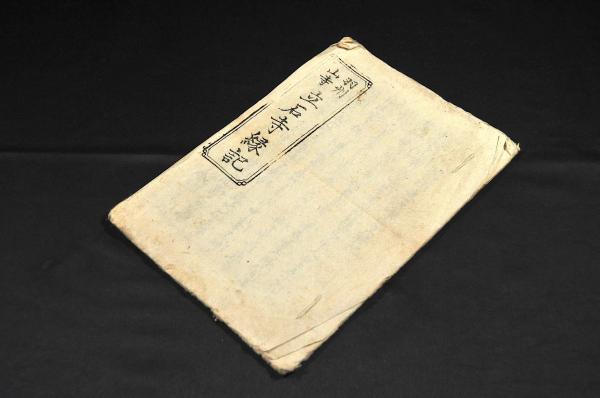 羽州
山寺
立石寺縁記